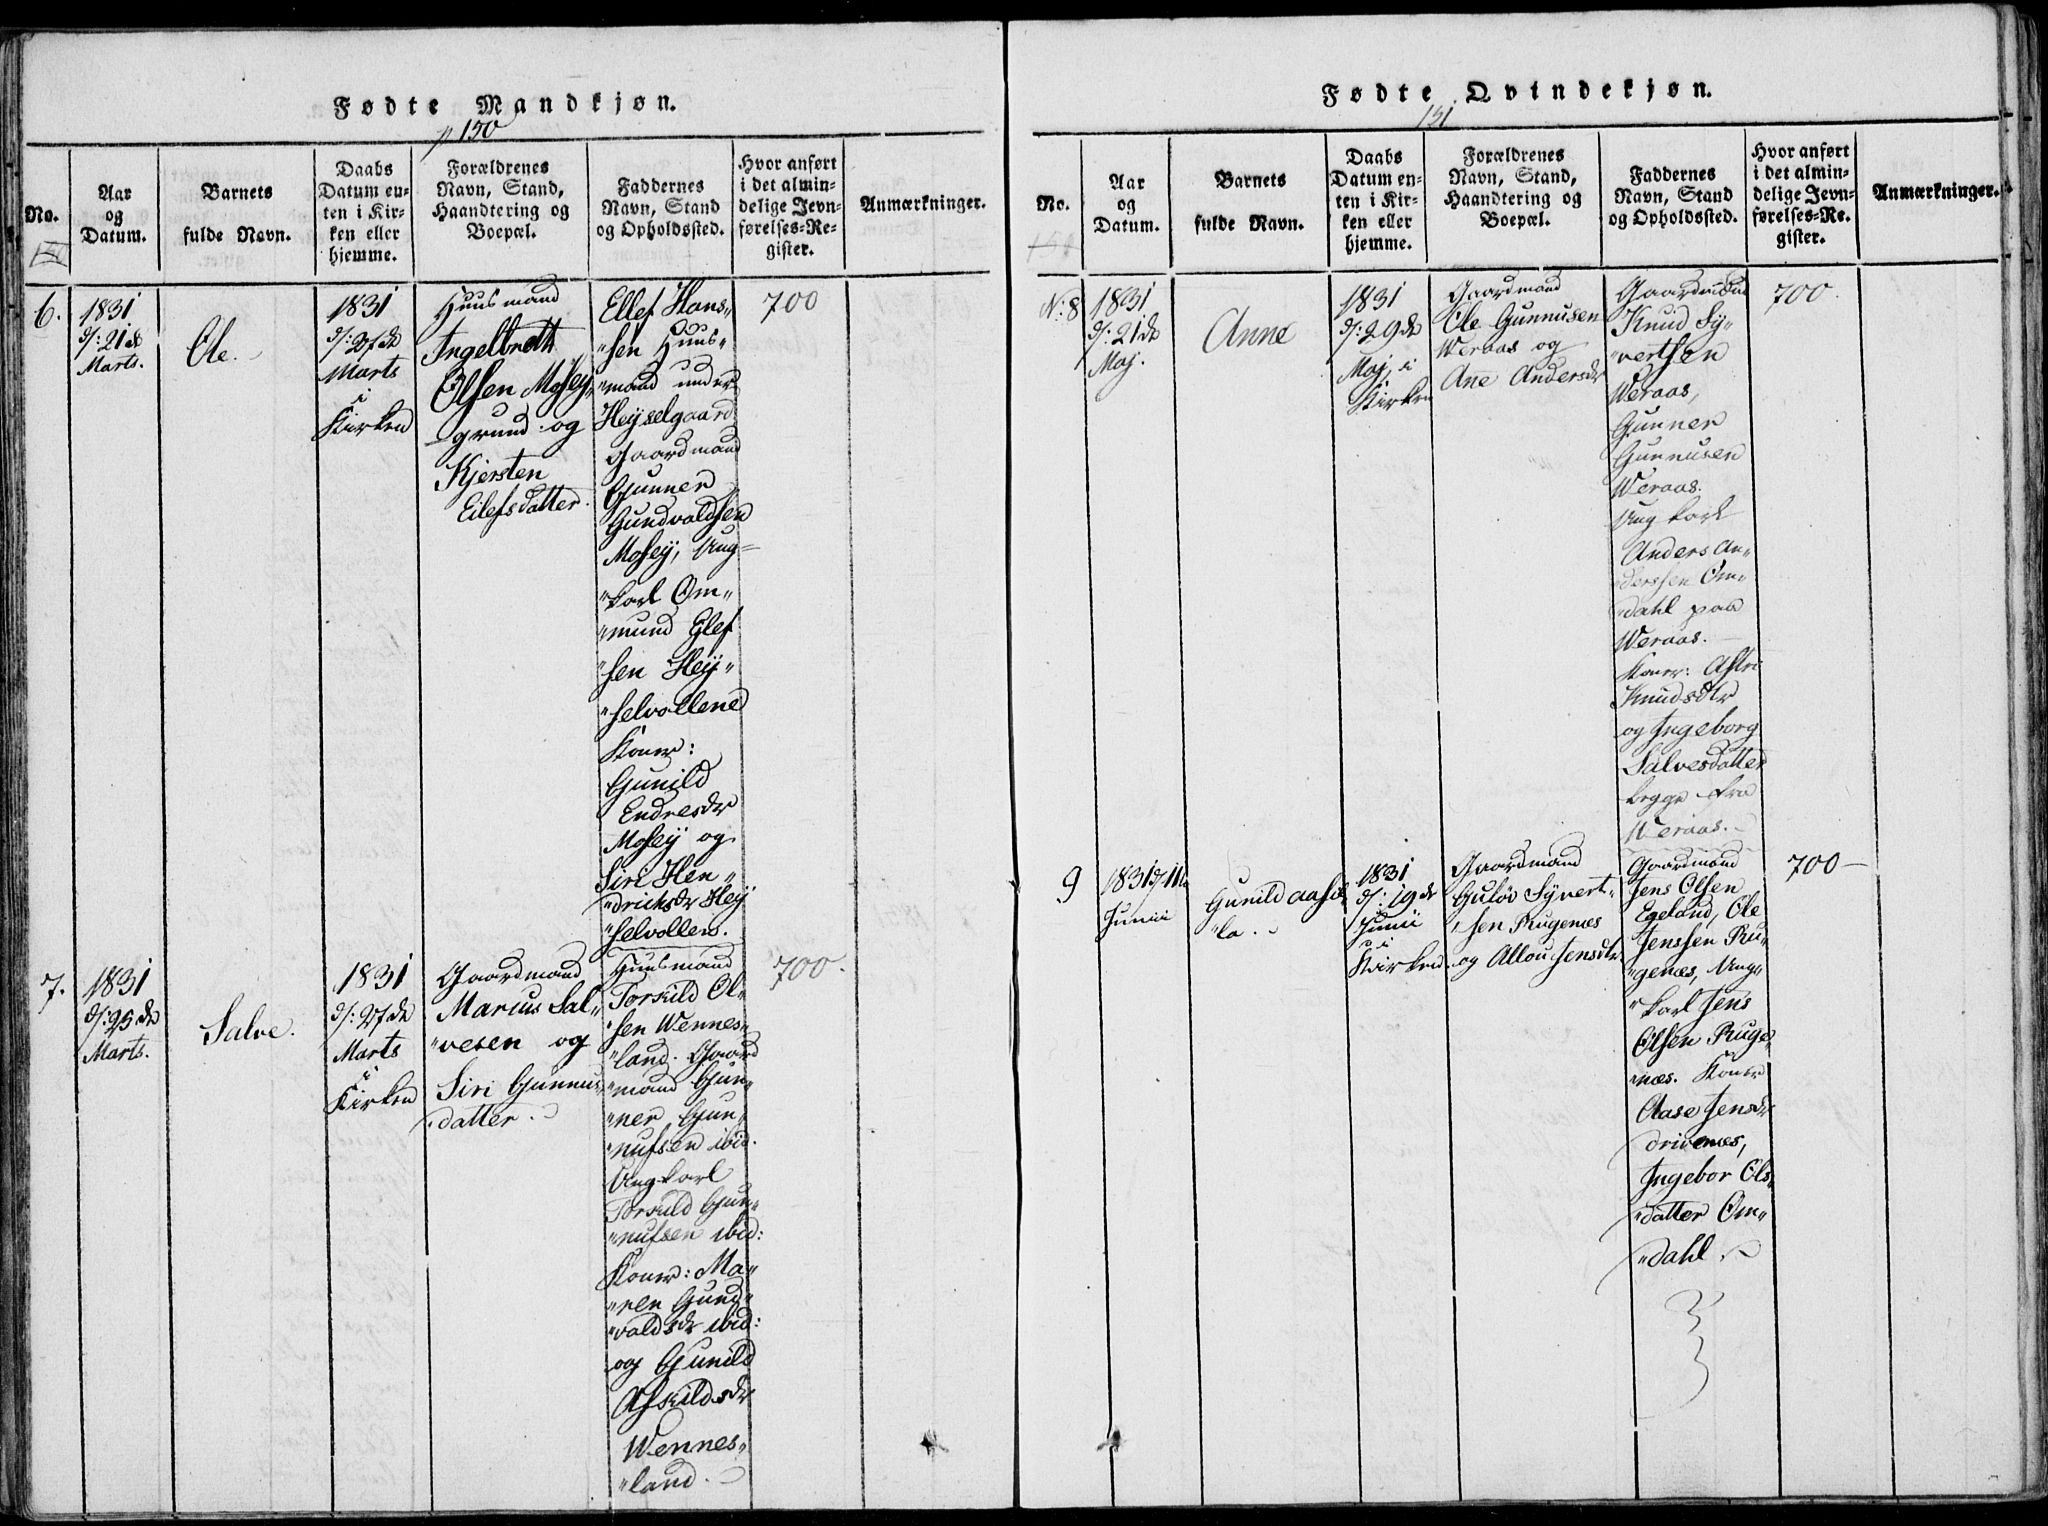 Fødte Mandkjøn.
150
No.
Aar
og
Datum.
Barnets
fulde Navn.
Daabs
Datum en-
ten i Kir-
ken eller
hjemme.
Forældrenes
Navn, Stand,
Haandtering og
Boepæl.
Faddernes
Navn, Stand
og Opholdssted.
Hvor anført
i det almin-
delige Jevn-
førelses-Re-
gister.
Anmærkninger.
6.
1831
d: 21de
Marts.
Ole.
1831
d: 27de
Marts
i
Kirken
Huusmand
Ingelbrett
Olsen Mosey
grund og
Kjersten
Eilefsdatter.
Ellef Hans„
„sen Huus„
„mand under
Heyselgaard
Gaardmand
Gunner
Gundvaldsen
Mosey, Ung„
„karl Om„
„mund Elef
„sen Hey„
„selvollene
Koner:
Gunild
Endresdr
Mosey og
Siri Hen„
„drichsdr Hey
„selvollen.
700
7.
1831
d: 25de
Marts.
Salve.
1831
d: 27de
Marts
i
Kirken
Gaardmand
Marius Sal„
„vesen og
Siri Gunnus„
„datter.
Huusmand
Torkild Ol„
„sen Wennes„
„land. Gaard
„mand Gun„
„ner Gun„
„nufsen ibid.
Ungkarl
Torkild Gun„
„nufsen ibid:
Koner: Ma„
„ren Gund„
„valdsdr ibid:
og Gunild
Askildsdr
Wennes„
„land.
700.
Fødte Qvindekjøn.
151
No.
Aar
og
Datum.
Barnets
fulde Navn.
Daabs
Datum en-
ten i Kir-
ken eller
hjemme.
Forældrenes
Navn, Stand,
Haandtering og
Boepæl.
Faddernes
Navn, Stand
og Opholdssted.
Hvor anført
i det almin-
delige Jevn-
førelses-Re-
gister.
Anmærkninger.
N: 8
1831
d: 21de
Maj.
Anne
1831
d: 29de
Maj, i
Kirken
Gaardmand
Ole Gunnusen
Weraas og
Ane Andersdr
Gaardmænd
Knud Sy„
„vertsen
Weraas,
Gunner
Gunnusen
Weraas.
Ung karl
Anders An„
„derssen Om„
„dahl paa
Weraas.
Koner: Astri
Knudsdtr
og Ingeborg
Salvesdatter
begge fra
Weraas.
700.
9
1831 d: 11te
Junii
Gunild Aase
„la.
1831
d: 19de
Junii
i
Kirken
Gaardmand
Guløv Syvert„
„sen Rugenæs
og Allou Jensdtr.
Gaardmand
Jens Olsen
Egeland, Ole
Jenssen Ru„
„genæs, Ung„
„karl Jens
Olsen Ruge„
„næs. Koner
Aase Jensdr
Drivenæs,
Ingebor Ols„
„datter Om„
„dahl.
700